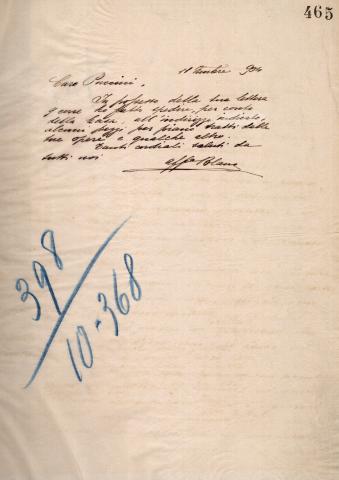 465
11 9mbre 904
Caro Puccini,
In possesso della tua lettera
9 corr. ho fatto spedire, per conto
della Casa, all'indirizzo indicato,
alcuni pezzi per piano tratti dalle
tue opere e qualche altro.
Tanti cordiali saluti da
tutti noi
398
10-368